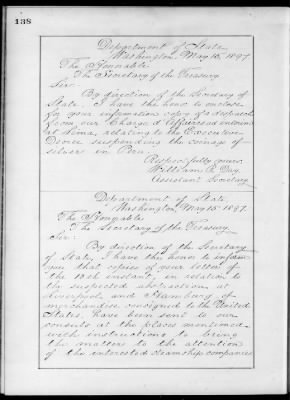 138
Department of State
Washington, May 15, 1897.
The Honorable
The Secretary of the Treasury
Sir:
By direction of the Secretary of
State, I have the honor to enclose
for your information copy of a despatch
from our Chargé d'Affaires ad interim
at Lima, relating to the Executive
Decree suspending the coinage of
silver in Peru.
Respectfully yours,
William R. Day,
Assistant Secretary
Department of State
Washington, May 15 1897.
The Honorable
The Secretary of the Treasury
Sir:
By direction of the Secretary
of State, I have the honor to inform
you that copies of your letter of
the 13th instant, in relation to
the suspected abstraction, at
Liverpool, and Hamburg of
merchandise consigned to the United
States, have been sent to our
consuls at the places mentioned
with instructions to bring
the matter to the attention
of the interested steamship companies